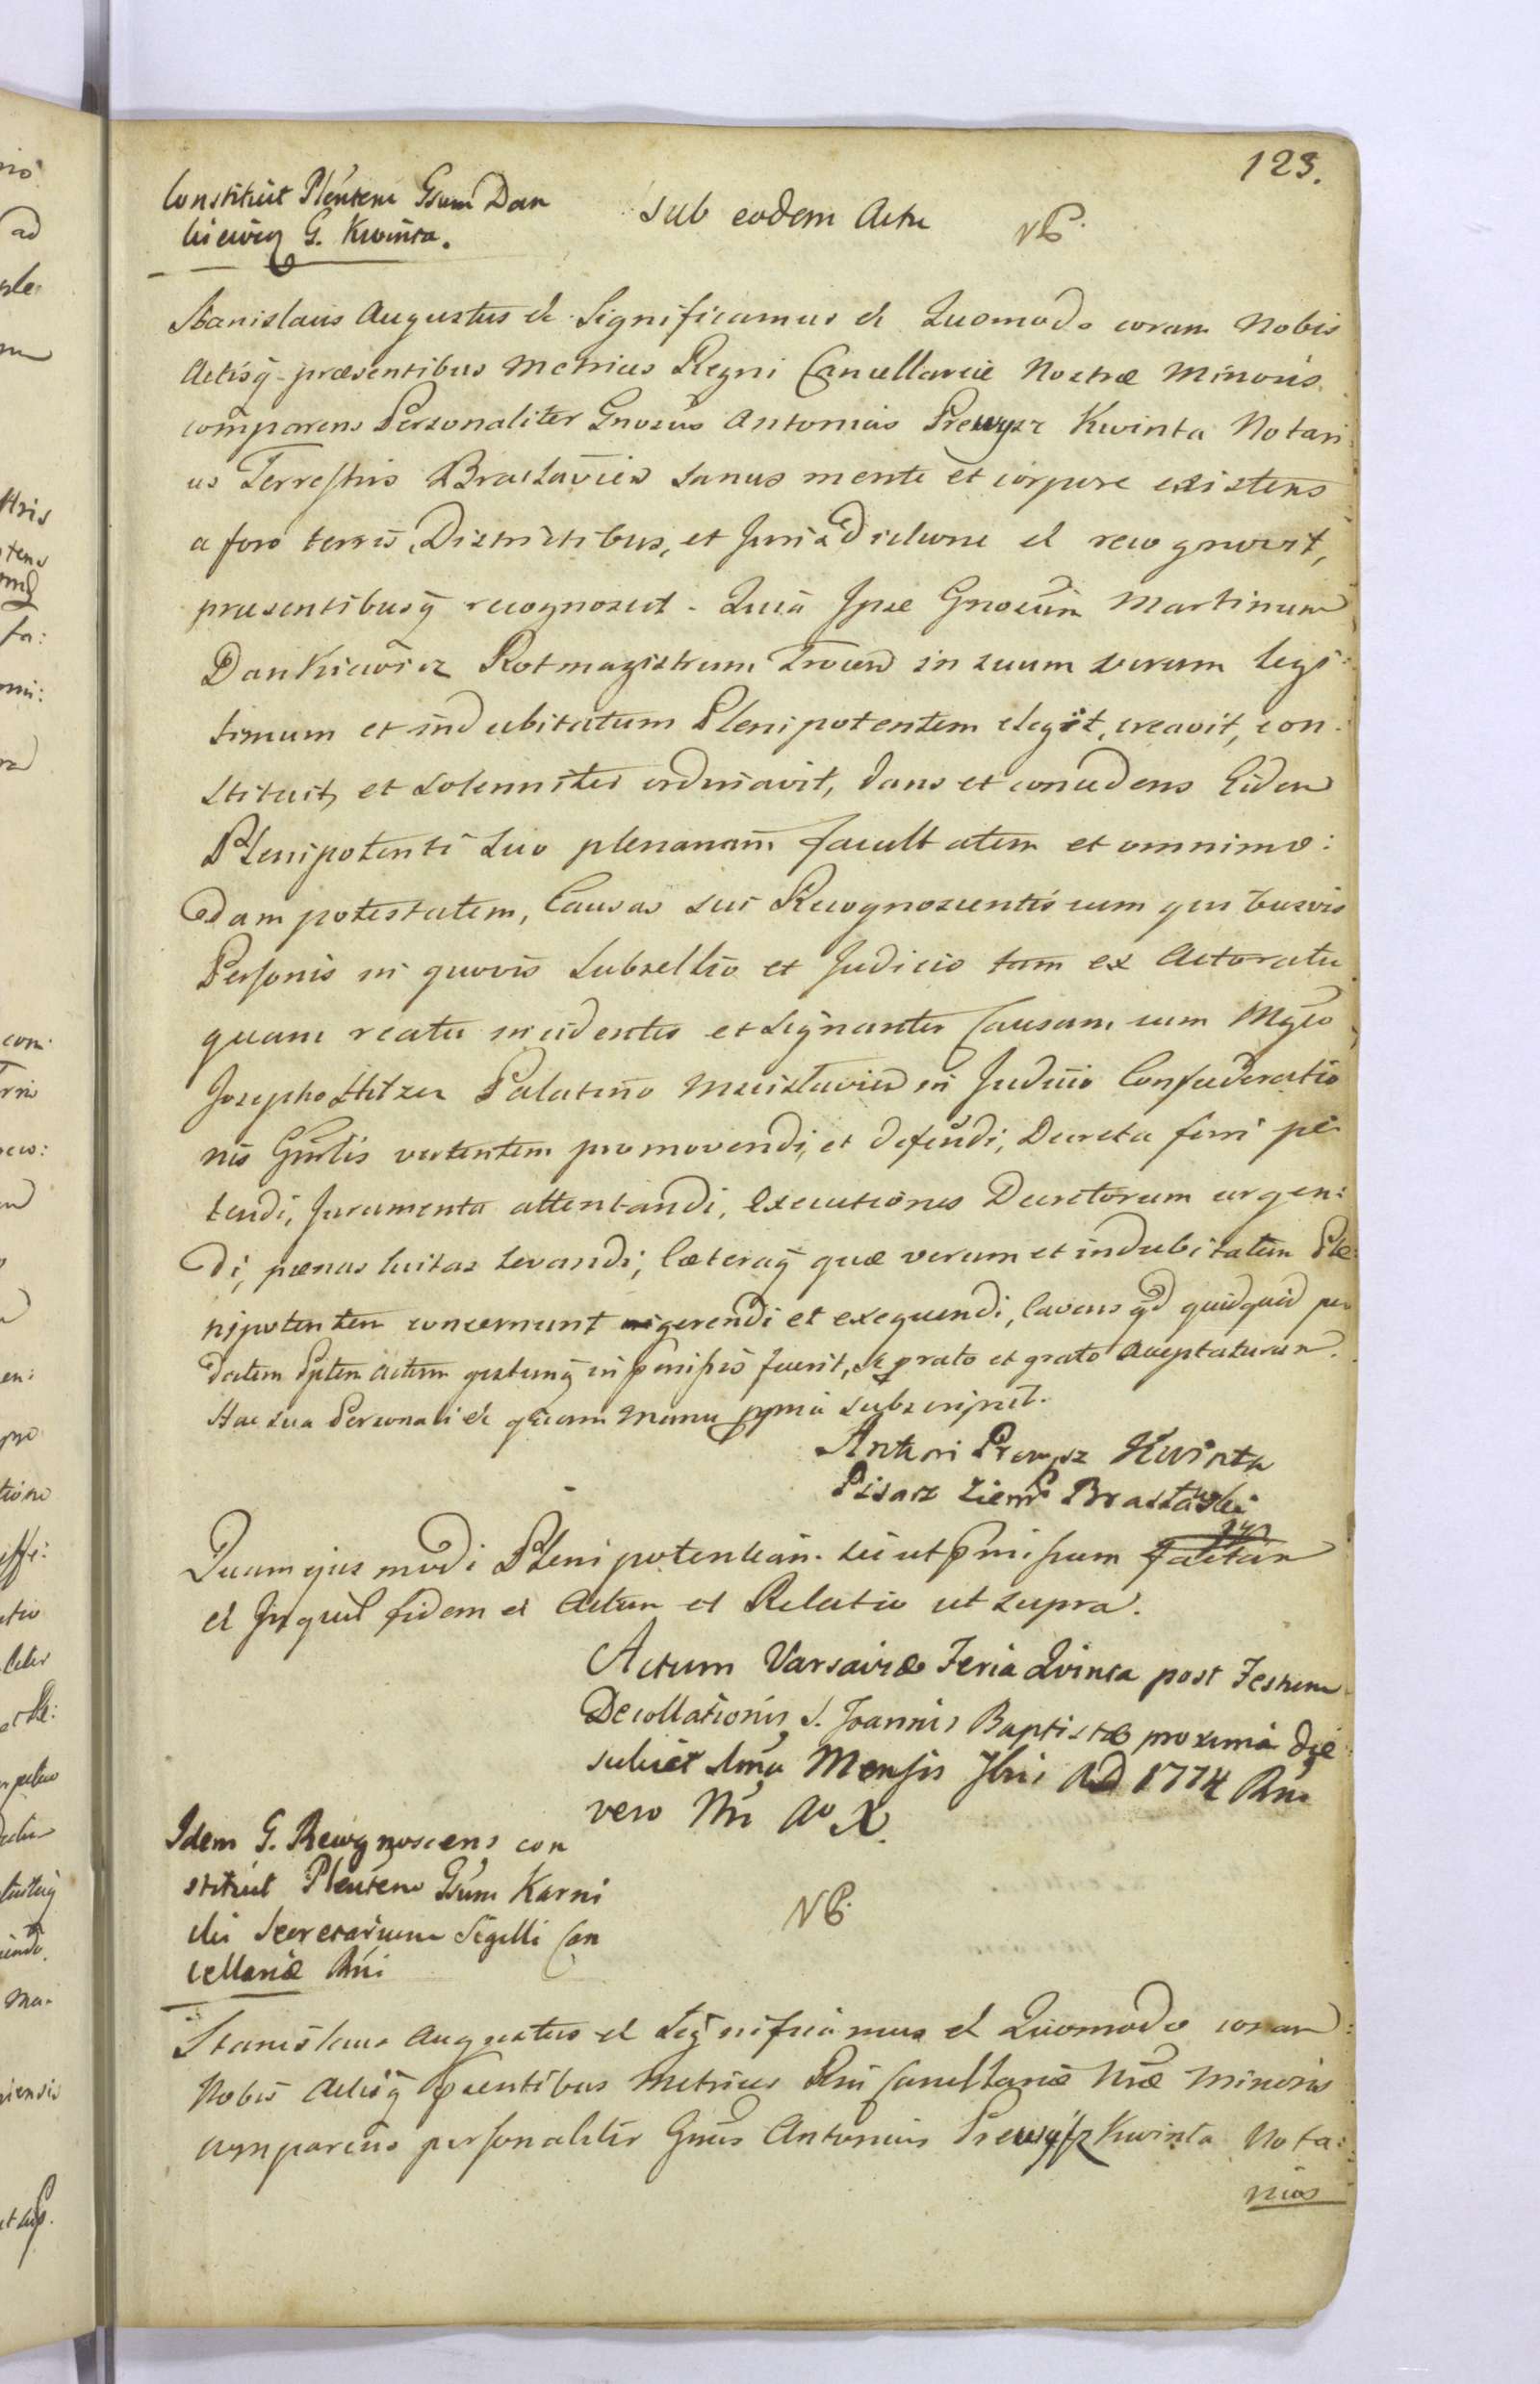 123.
Constituit Plentem Gsum Dan
kiewicz G. Kwinta.
Sub eodem Actu
NB.
Stanislaus Augustus et Significamus et Quomodo coram Nobis
Actisq præsentibus Metrices Regni Cancellariæ Nostræ Minoris
comparens Personaliter Gnosus Antonius Prewysz Kwinta Notari
us Terrestris Braclavien sanus mente et corpore existens
a foro terris, Districtibus, et Jurisdictione et recognovit,
presentibusq recognoscit. Quia Ipse Gnosum Martinum
Dankiewicz Rotmagistrum Trocen in suum verum legi:
timum et indubitatum Plenipotentem elegit, creavit, con:
stituit, et solemniter ordinavit, dans et concedens Eidem
Plenipotenti suo plenariam facultatem et omnimo:
dam potestatem, Causas sui Recognoscentis cum quibusvis
Personis in quovis Subsellio et Judicio tam ex Actoratu
quam reatu incidentes et signanter Causam cum Mgco
Josepho Hilzen Palatino Mscislavien in Judicio Confæderatio
nis Gnrlis vertentem promovendi, et defendi, Decreta ferri pe
tendi, Juramenta attentandi, Executiones Decretorum urgen:
di, pœnas luitas levandi, Cæteraq quæ verum et indubitatum Ple:
nipotentem concernunt gerendi et exequendi, Cavens qd quidquid per
dictum Plptem actum gestumq in pmissis fuerit, se prato et grato acceptaturum.
Hac sua Personali et quam Manu ppria subscripsit.
Antoni Prewysz Kwinta
Pisarz Ziemp Brasławski
Quam ejus modi Plenipotentiam. sic ut pmissum factam
et In quol fidem et Actum et Relatio ut supra.
Actum Varsaviæ Feria Quinta post Festum
Decollationis S. Joannis Baptistæ proxima die
scilicet 1ma Mensis 7bris AD 1774 Rni
vero Nri Ao X.
Idem G. Recognoscens con
stituit Plentem Gsum Karni
cki Secretarium Sigilli Can
cellariæ Rni
NB.
Stanislaus Augustus et Significamus et Quomodo coram:
Nobis Actisq pæentibus Metrices Rni Cancellariæ Nræ Minoris
comparens personaliter Gnus Antonius Prewysz Kwinta Nota:
rius